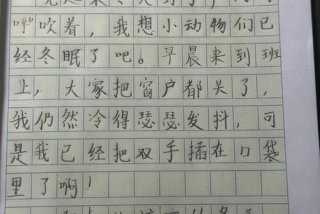 呼”吹着，我想小动物们已
经冬眠了吧。早晨来到班
上，大家把窗户都关了，
我仍然冷得瑟瑟发抖，可
是我已经把双手插在口袋
里了啊！